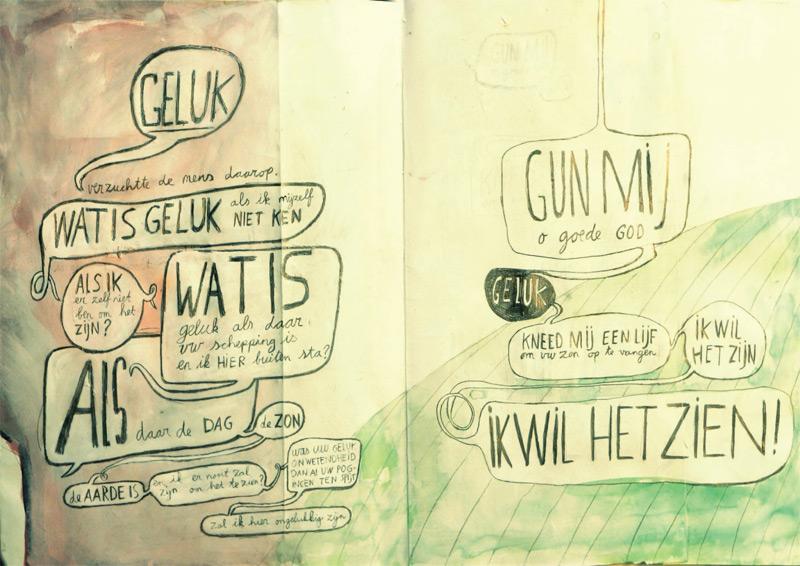 GELUK
verzuchtte de mens daarop.
WAT IS GELUK als ik mijzelf
NIET KEN
ALS IK
er zelf niet
ben om het
ZIJN?
WAT IS
geluk als daar
uw schepping is
en ik HIER buiten sta?
ALS daar de DAG
de ZON
de AARDE IS
en ik er nooit zal
zijn om het te zien?
WAS UW GELUK
ONWETENDHEID
DAN AL UW POG-
INGEN TEN SPIJT
zal ik hier ongelukkig zijn
GUN MIJ
GUN MIJ
o goede GOD
GELUK
KNEED MIJ EEN LIJF
om uw zon op te vangen
IK WIL
HET ZIJN
IK WIL HET ZIEN!